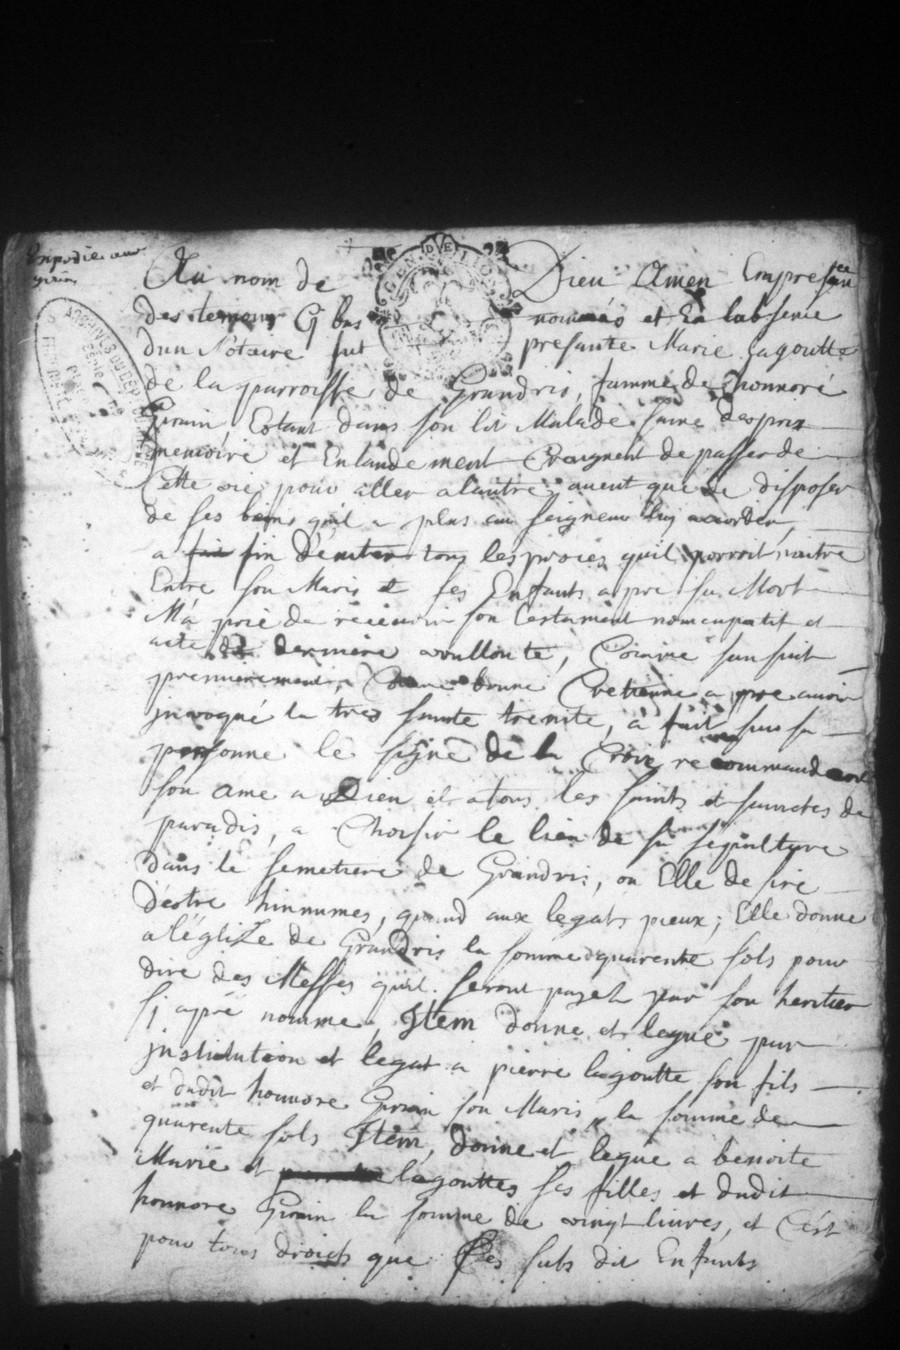 Expedié aux
Girin
GEN DE LION
ARCHIVES DU DEP DU RHONE
Au nom de Dieu Amen Empre sce
des temoins G bas nommés et En labsence
dun Notaire fut presante Marie Lagoutte
de la parroisse de Grandris, famme de honnoré
Girin Estant dans son lit Malade saine desprit
memoire et Entandement Craignent de passer de
Cette vie pour aller a lautre, avent que de disposer
de ses biens quil a plus au seigneur luy accorder
a fin d'éviter tous les proces quil porroit naitre
Entre son Maris et ses Enfants apre sa Mort
M'a prié de recevoir son testament noncupatif et
acte de dernière vollonté, Comme sansuit
premierement, Comme bonne Cretienne a pre avoir
jnvoqué la tres sainte trenite, a fait sur sa
personne le signe de la Croix recommandant
son ame a Dieu et a tous les saints et sainctes de
paradis, a Choisir le lieu de sa sepulture
dans le semetiere de Grandris, ou Elle desire
d'estre hinnumes, quand aux legats pieux; Elle donne
a l'églize de Grandris la somme de quarente sols pour
dire des Messes quil seront payez par son heritier
sj apré nomme, Item donne et legue par
jnstitution et legat a pierre lagoutte son fils
et dudit honnore Girin son Maris, la somme de
quarente sols Item, donne et legue a benoite
Marie et lagouttes ses filles et dudit
honnore Girin la somme de vingt livres, et C'est
pour tous droits que les subs dit Enfants